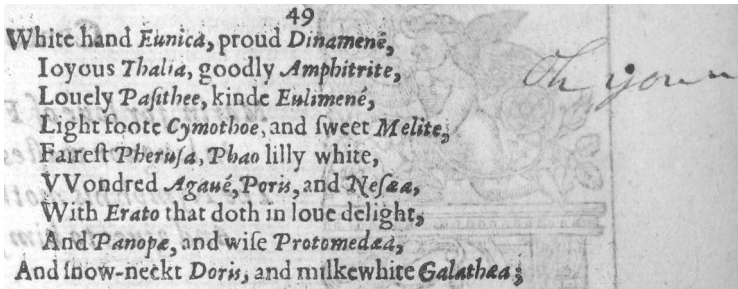 49
White hand Eunica, proud Dinamenè,
Ioyous Thalia, goodly Amphitrite,
Louely Paſithee, kinde Eulimené,
Light foote Cymothoe, and ſweet Melite,
Faireſt Pheruſa, Phao lilly white,
VVondred Agaué, Poris, and Neſæa,
With Erato that doth in loue delight,
And Panopæ, and wiſe Protomedæa,
And ſnow-neckt Doris, and milkewhite Galathæa;